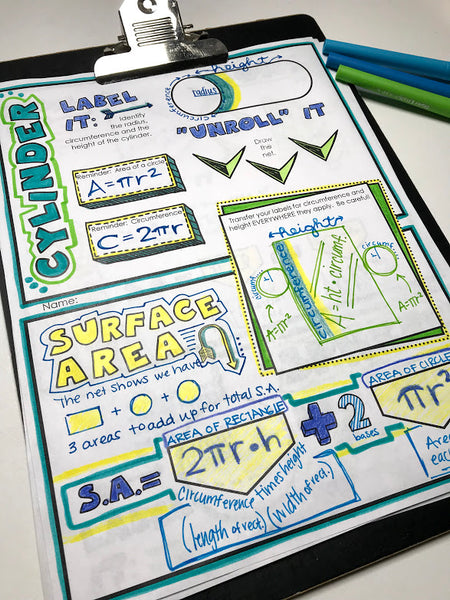 CYLINDER
LABEL
IT:
Identify
the radius,
circumference and the
height of the cylinder.
height
circumference
radius
"UNROLL" IT
Draw
the
net.
Reminder: Area of a circle
A=πr²
Reminder: Circumference
C=2πr
Transfer your labels for circumference and
height EVERYWHERE they apply. Be careful!
height
circumference
circumf.
A=πr²
A=πr²
Name:
SURFACE
AREA
The net shows we have
+ +
3 areas to add up for total S.A.
AREA OF RECTANGLE
AREA OF CIRCLE
S.A.= 2πr·h + 2 πr²
bases
Circumference times height
(length of rect.) (width of rect.)
Area
each